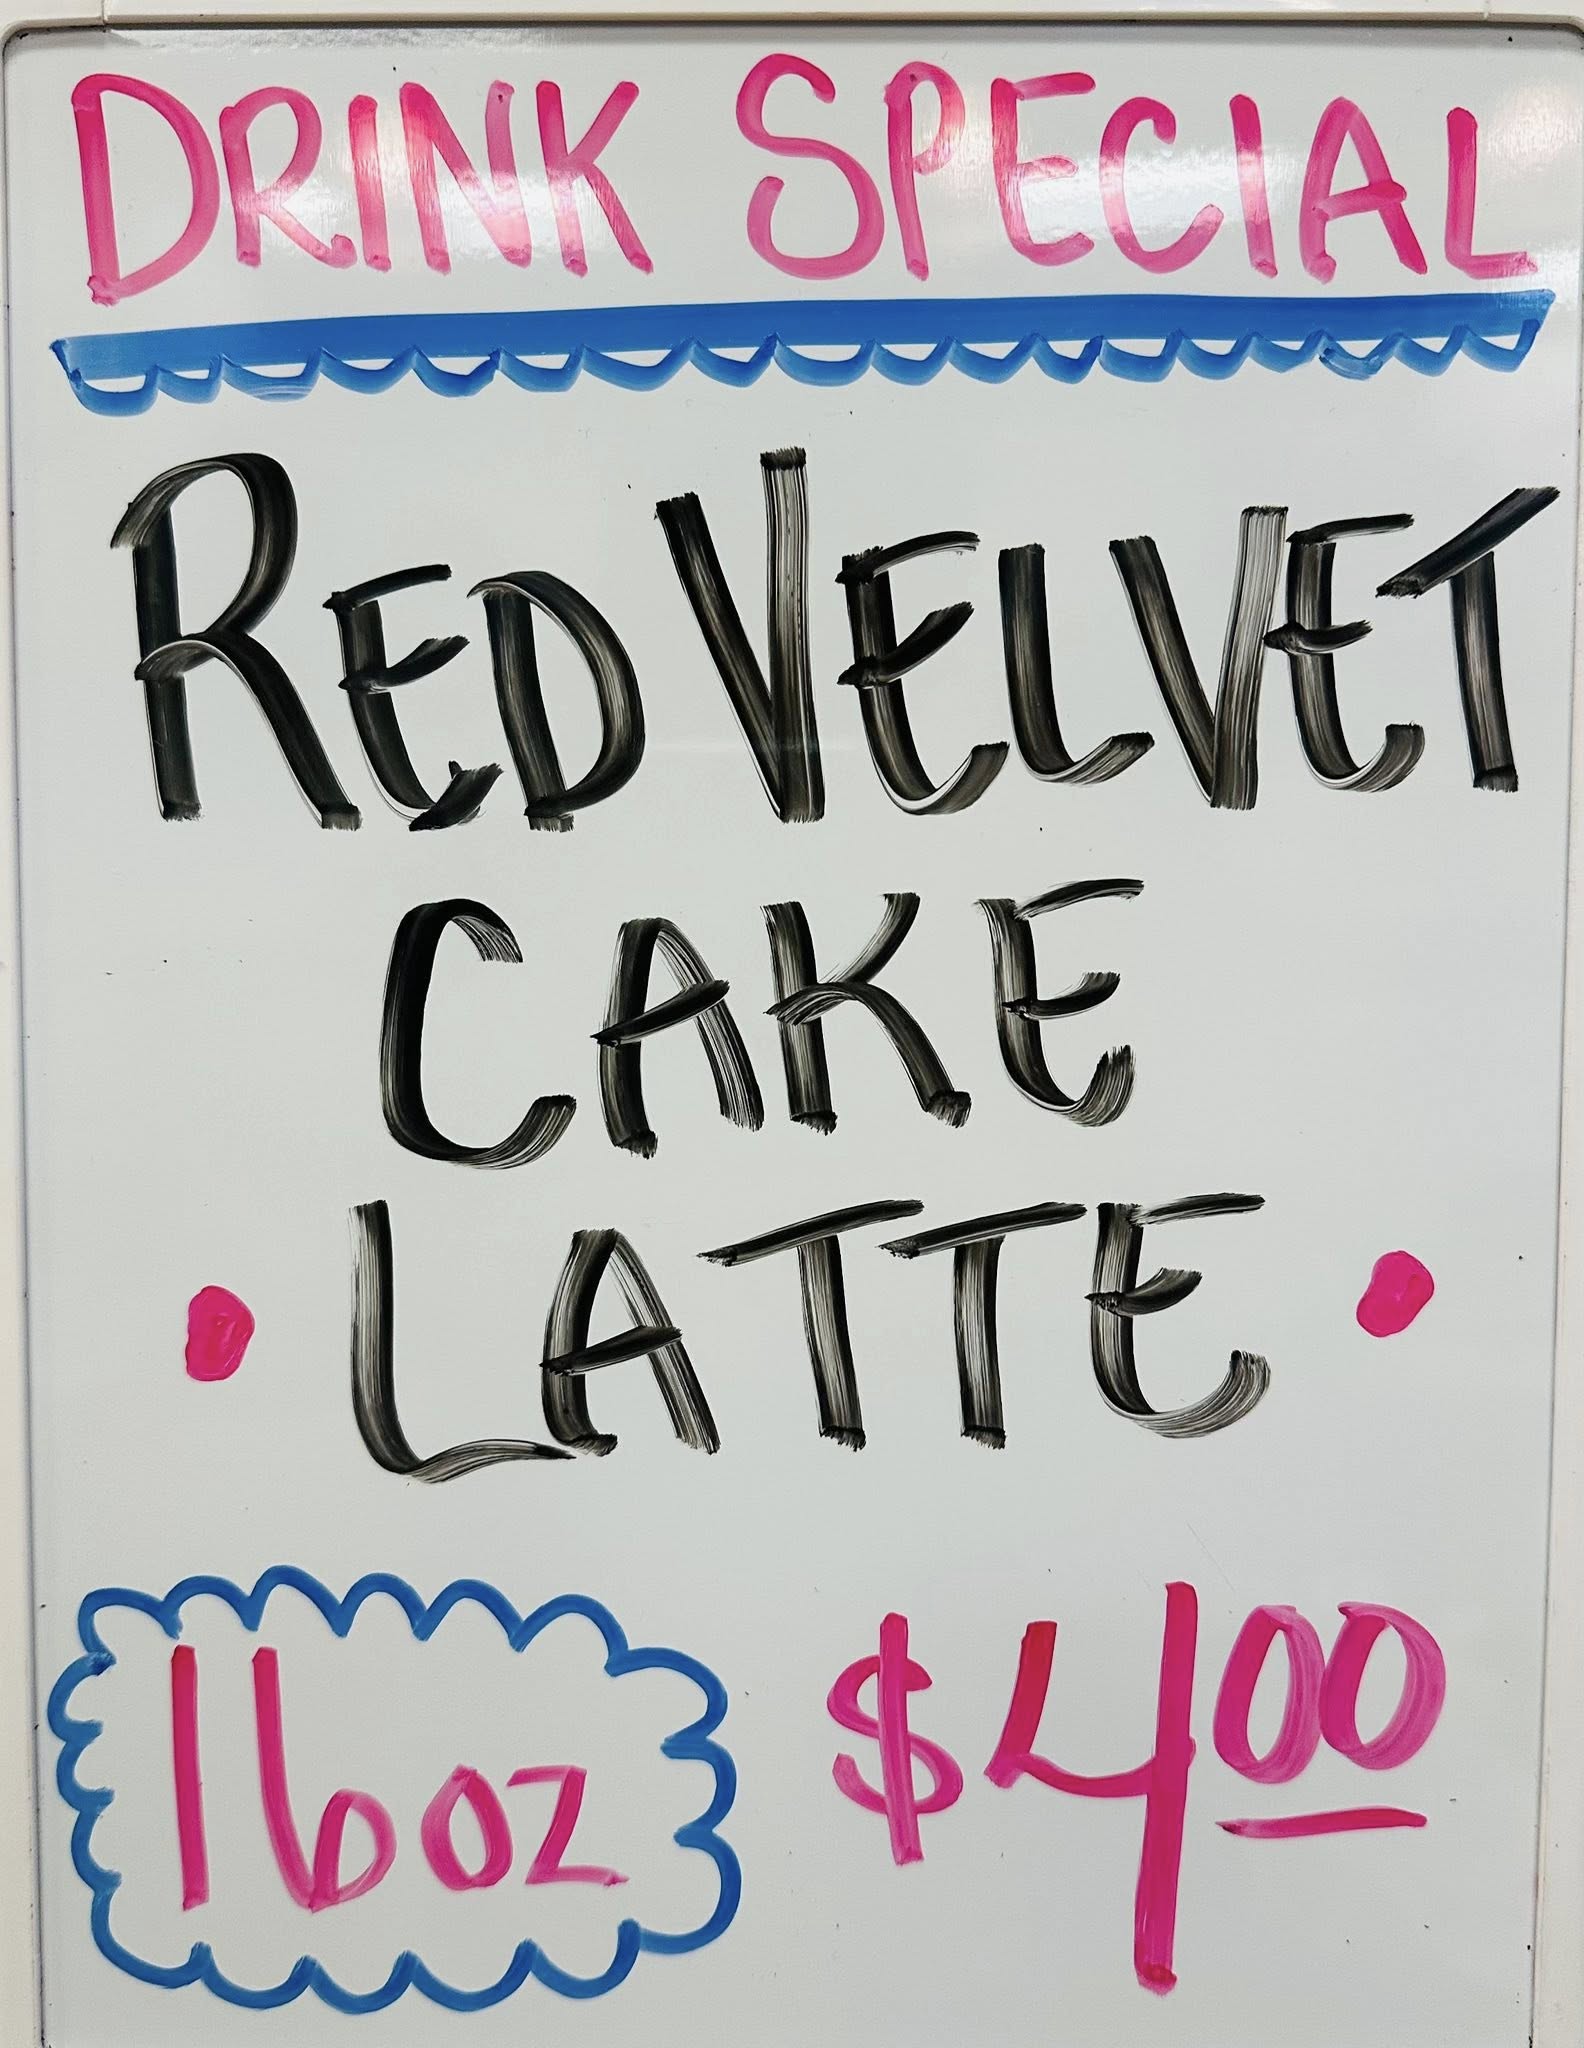 DRINK SPECIAL
RED VELVET
CAKE
LATTE
16oz $4.00